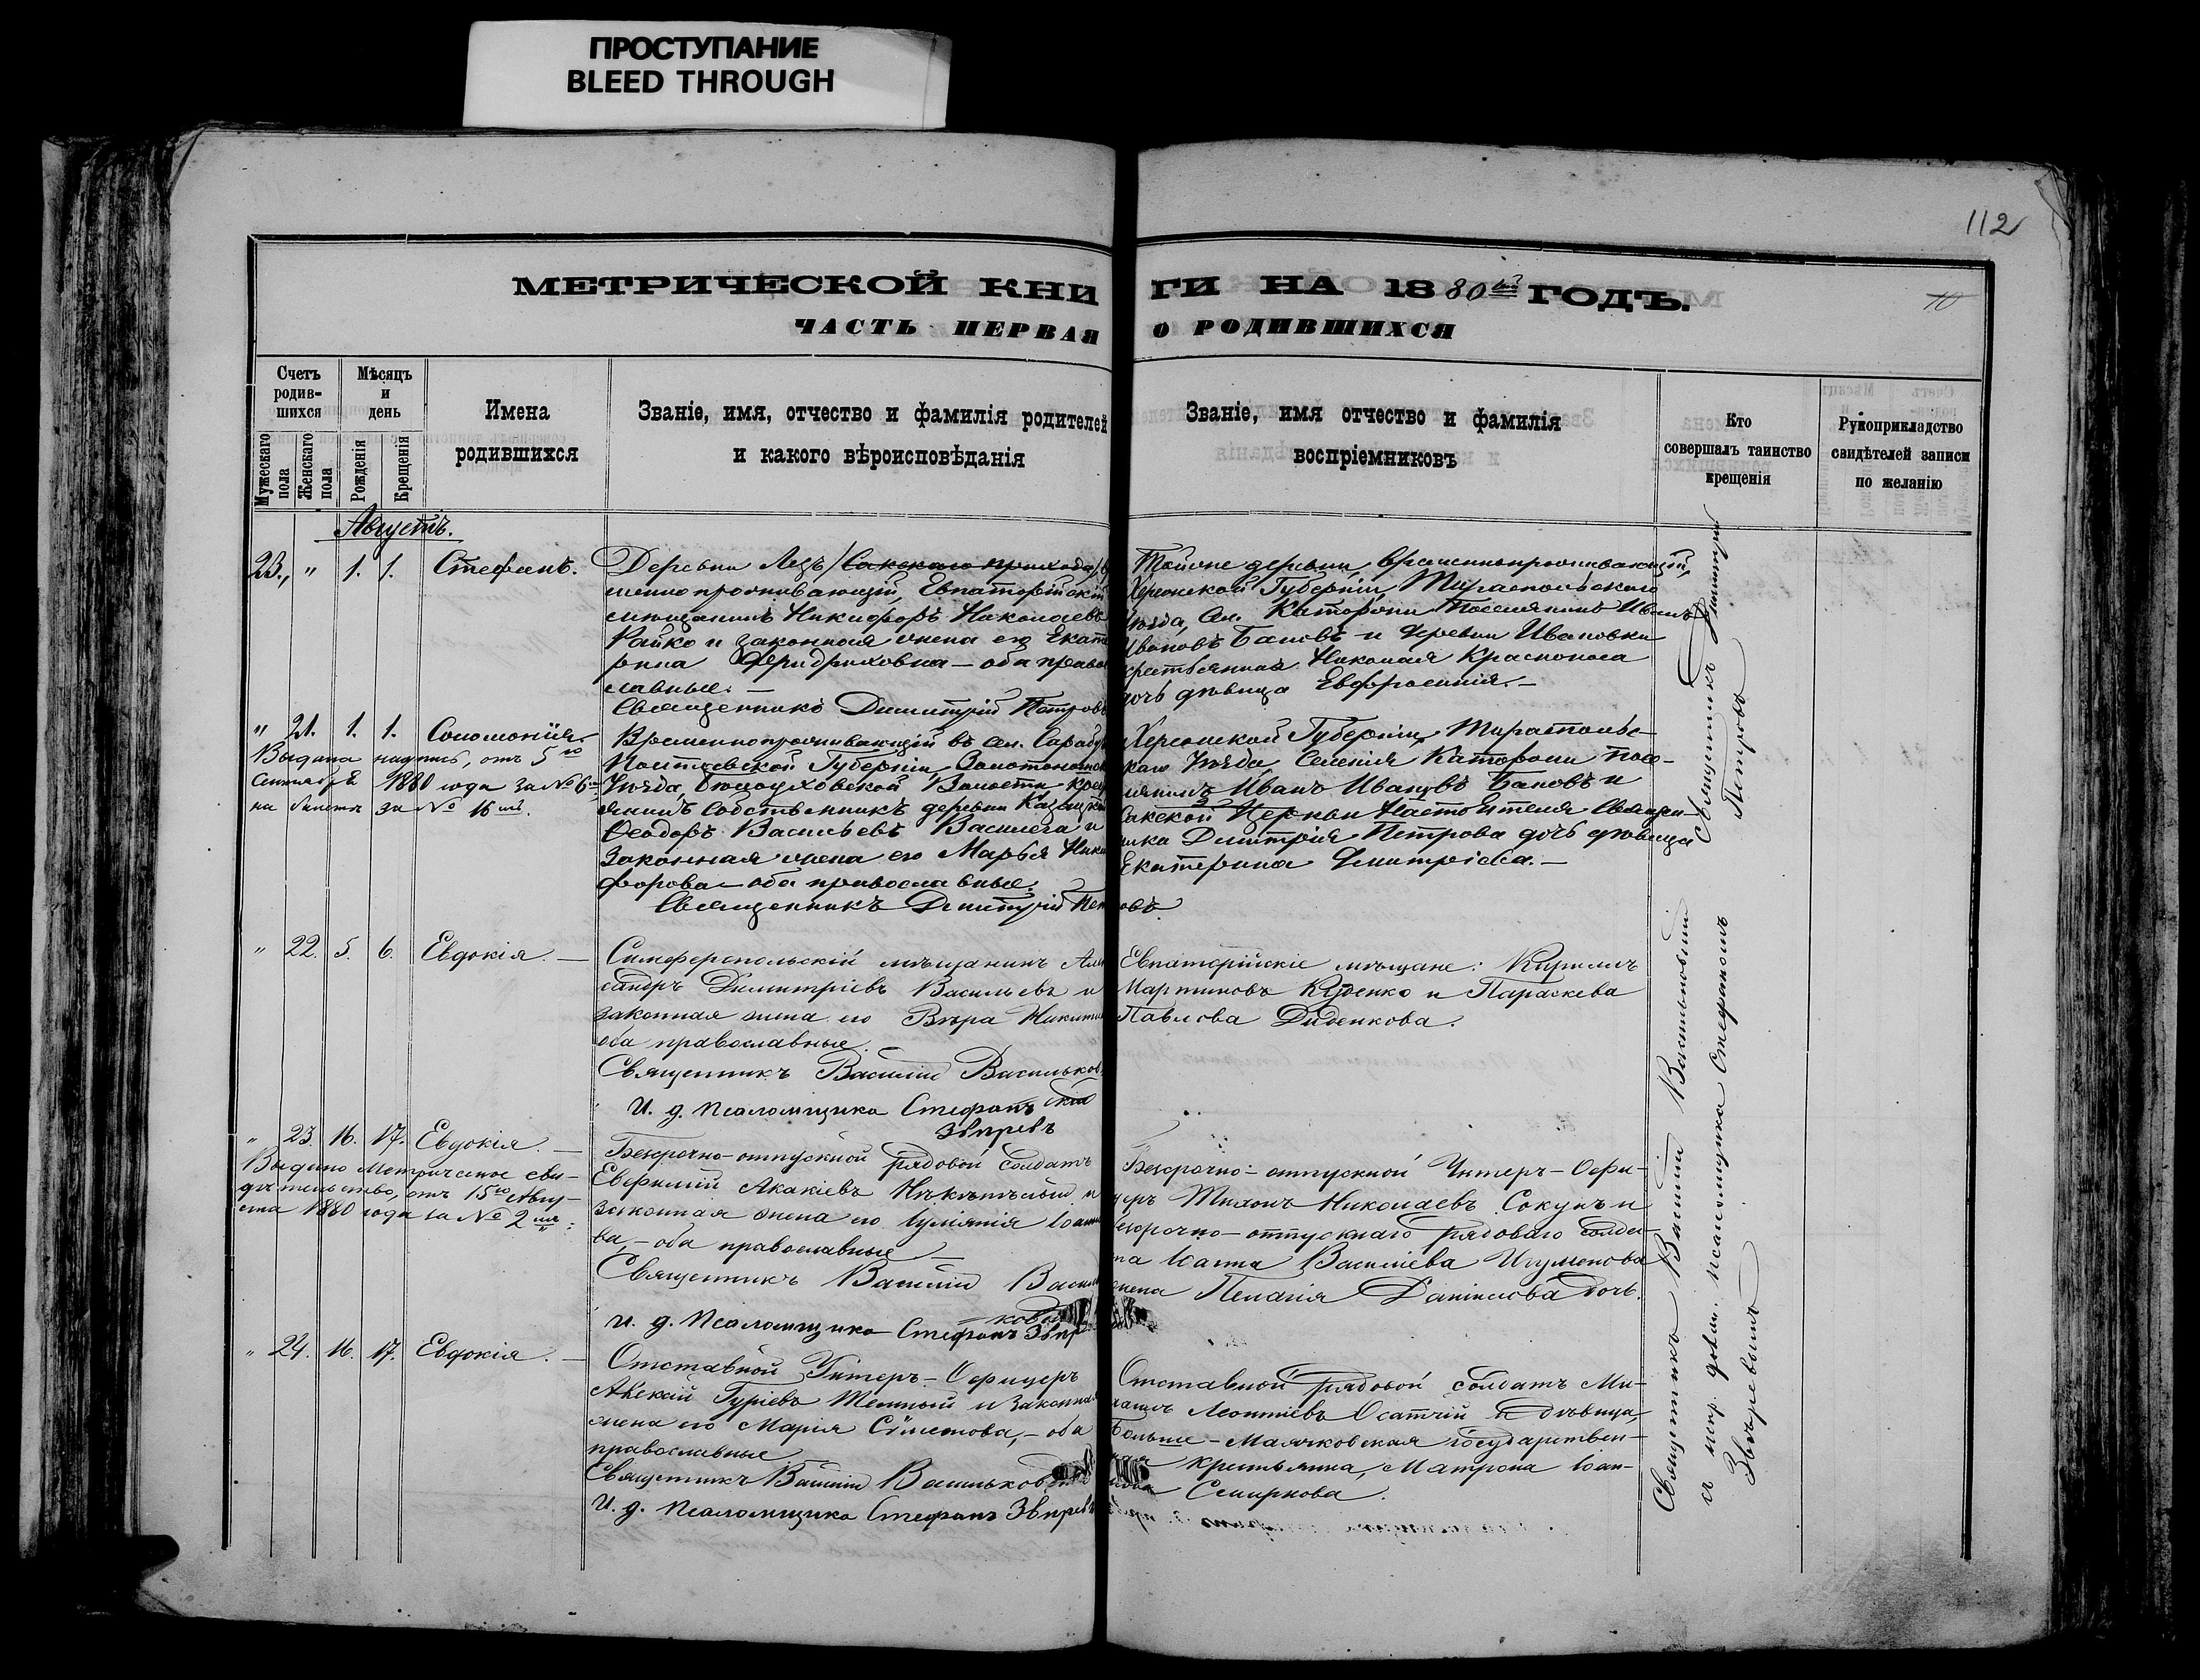 ПРОСТУПАНИЕ
BLEED THROUGH
112
МЕТРИЧЕСКОЙ КНИГИ НА 1880 ГОДЪ.
10
ЧАСТЬ ПЕРВАЯ О РОДИВШИХСЯ
Счетъ родив-шихся
Мужескаго пола
Женскаго пола
Мѣсяцъ и день
Рожденія
Крещенія
Имена
родившихся
Званіе, имя, отчество и фамилія родителей
и какого вѣроисповѣданія
Званіе, имя отчество и фамилія
воспріемниковъ
Кто
совершалъ таинство
крещенія
Рукоприкладство
свидѣтелей записи
по желанію
Августъ.
23. " 1. 1. Стефанъ.
Деревни Лезъ / Сакскаго прихода /
менно проживающій, Евпаторійскій
мѣщанинъ Никифоръ Николаевъ
Райко и законная жена его Екате
рина Фридриховна – оба право
славные. –
Священникъ Димитрій Петровъ
Тойоне деревни, временнопроживающій,
Херсонской Губерніи, Тираспольскаго
Уѣзда, Сел. Катаржи Поселянинъ Иванъ
Ивановъ Бановъ и деревни Ивановки
крестьянина Николая Красноноса
дочь дѣвица Евфросинія. –
" 21. 1. 1. Соломонія.
Выдана надпись, отъ 5го
Сентября 1880 года за № 6
на билетѣ за № 16
Временнопроживающій въ сел. Сарабу
Полтавской Губерніи, Золотонош
Уѣзда, Волости крес
янинъ Собственникъ деревни
Ѳеодоръ Васильевъ Василега и
законная жена его Марья Ники
форова – оба православные.
Священникъ Димитрій Петровъ.
Херсонской Губерніи, Тирасполь-
каго Уѣзда, Селенія Катаржи посе-
лянинъ Иванъ Ивановъ Бановъ и
Сакской Церкви Настоятеля Священ-
ника Димитрія Петрова дочь дѣвица
Екатерина Димитріева. –
Священникъ Димитрій
Петровъ
" 22. 5. 6. Евдокія. –
Симферопольскій мѣщанинъ Алек
сандръ Димитріевъ Васильевъ и
законная жена его Вѣра Никити
оба православные.
Священникъ Василій Васильков
скій
И. д. Псаломщика Стефанъ
Звѣревъ
Евпаторійскіе мѣщане: Кириллъ
Мартиновъ Куценко и Параскева
Павлова Диденкова.
" 23. 16. 17. Евдокія. –
Выдано Метрическое сви-
дѣтельство, отъ 15го Авгу-
ста 1880 года за № 2
Безсрочно-отпускной рядовой солдатъ
Евфимій Акакіевъ и
законная жена его Іуліянія Іоанно
ва, – оба православные –
Священникъ Василій Василь
ковскій
И. д. Псаломщика Стефанъ Звѣр
Безсрочно-отпускной Унтеръ-Офи-
церъ Тихонъ Николаевъ Сокуръ и
безсрочно-отпускнаго рядоваго солда-
та Іоанна Василіева Игуменова
жена Пелагія Даніилова дочь.
" 24. 16. 17. Евдокія. –
Отставной Унтеръ-Офицеръ
Алексій Гуріевъ Темный и законная
жена его Марія – оба
православные
Священникъ Василій Васильковскій
И. д. Псаломщика Стефанъ Звѣревъ
Отставной рядовой солдатъ Ми-
хаилъ Леонтіевъ Осатчій и дѣвица,
Больше-Маячковская государствен-
ная крестьянка, Матрона Іоан-
нова Смирнова.
Священникъ Василій Васильковскій
съ испр. долж. псаломщика Стефаномъ
Звѣревымъ